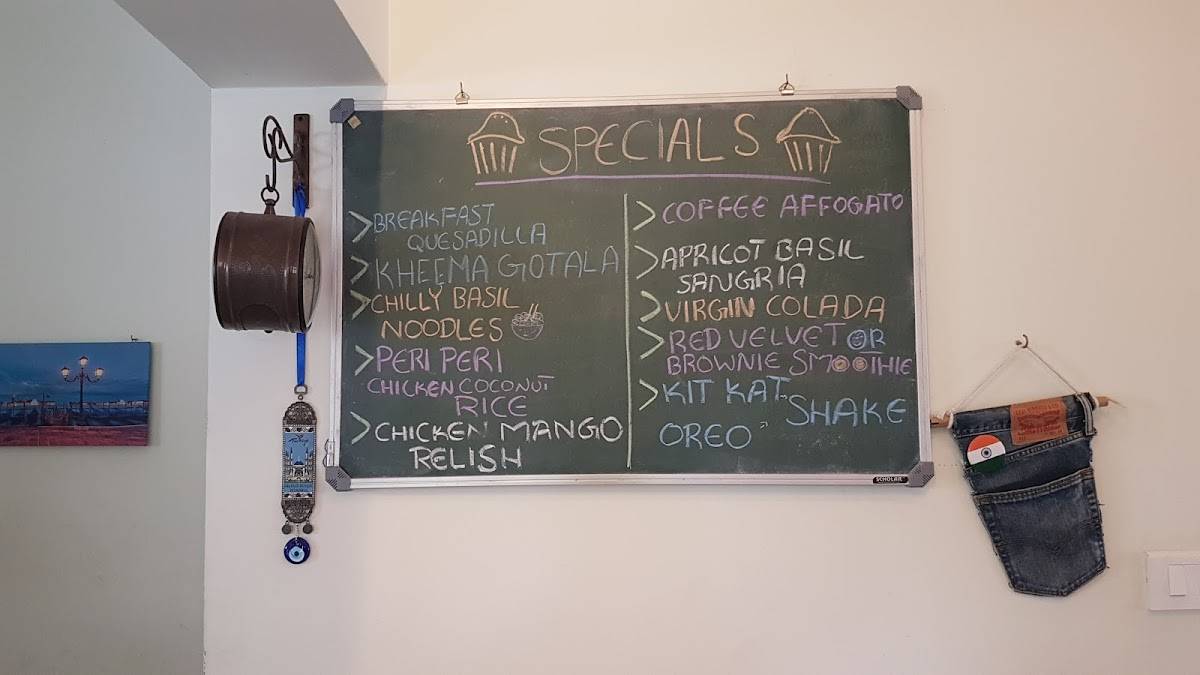 SPECIALS
> BREAKFAST
QUESADILLA
> KHEEMA GOTALA
> CHILLY BASIL
NOODLES
> PERI PERI
CHICKEN COCONUT
RICE
> CHICKEN MANGO
RELISH
> COFFEE AFFOGATO
> APRICOT BASIL
SANGRIA
> VIRGIN COLADA
> RED VELVET OR
BROWNIE SMOOTHIE
> KIT KAT
SHAKE
OREO
SCHOLAR